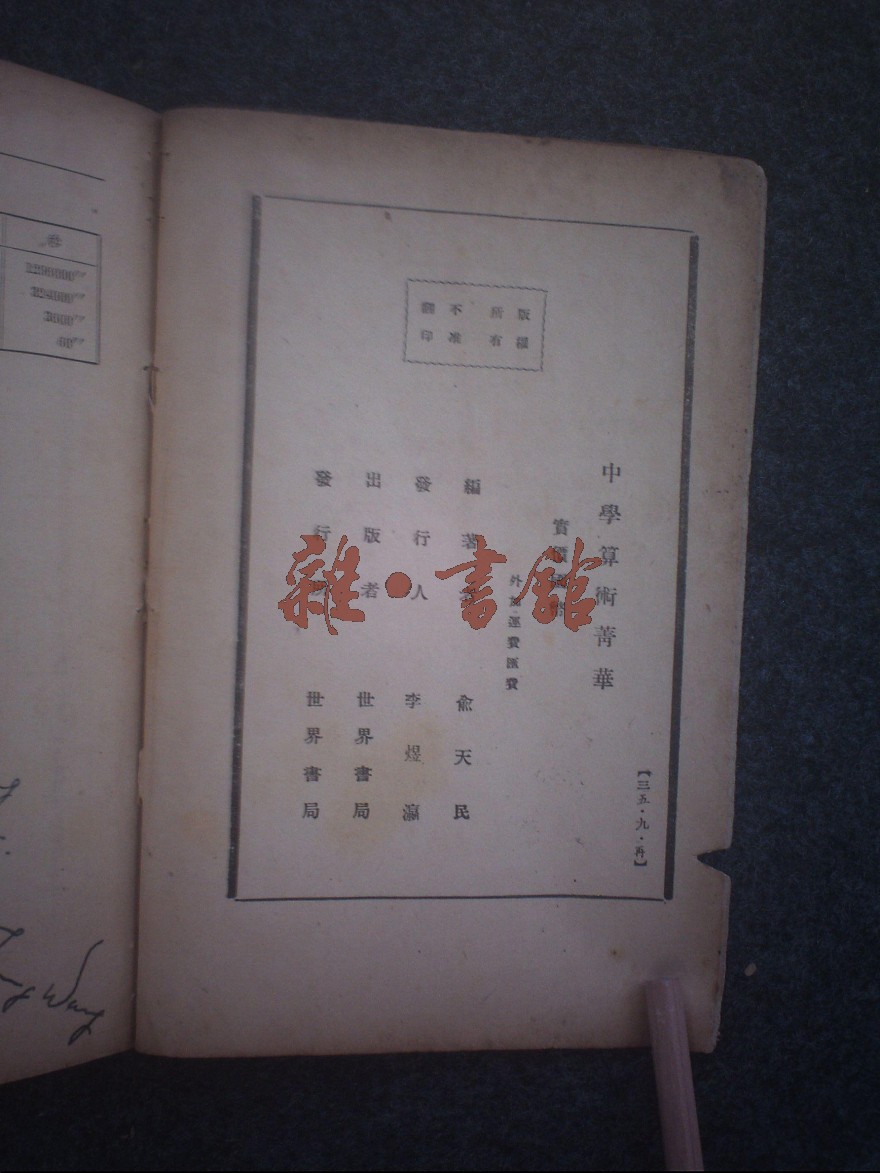 版權
所有
不准
翻印
中學算術菁華
【三五·九·再】
實價國幣
外加運費匯費
編著者 俞天民
發行人 李煜瀛
出版者 世界書局
發行所 世界書局
雜·書館
叁
1296000''
3600''
60''
Wang